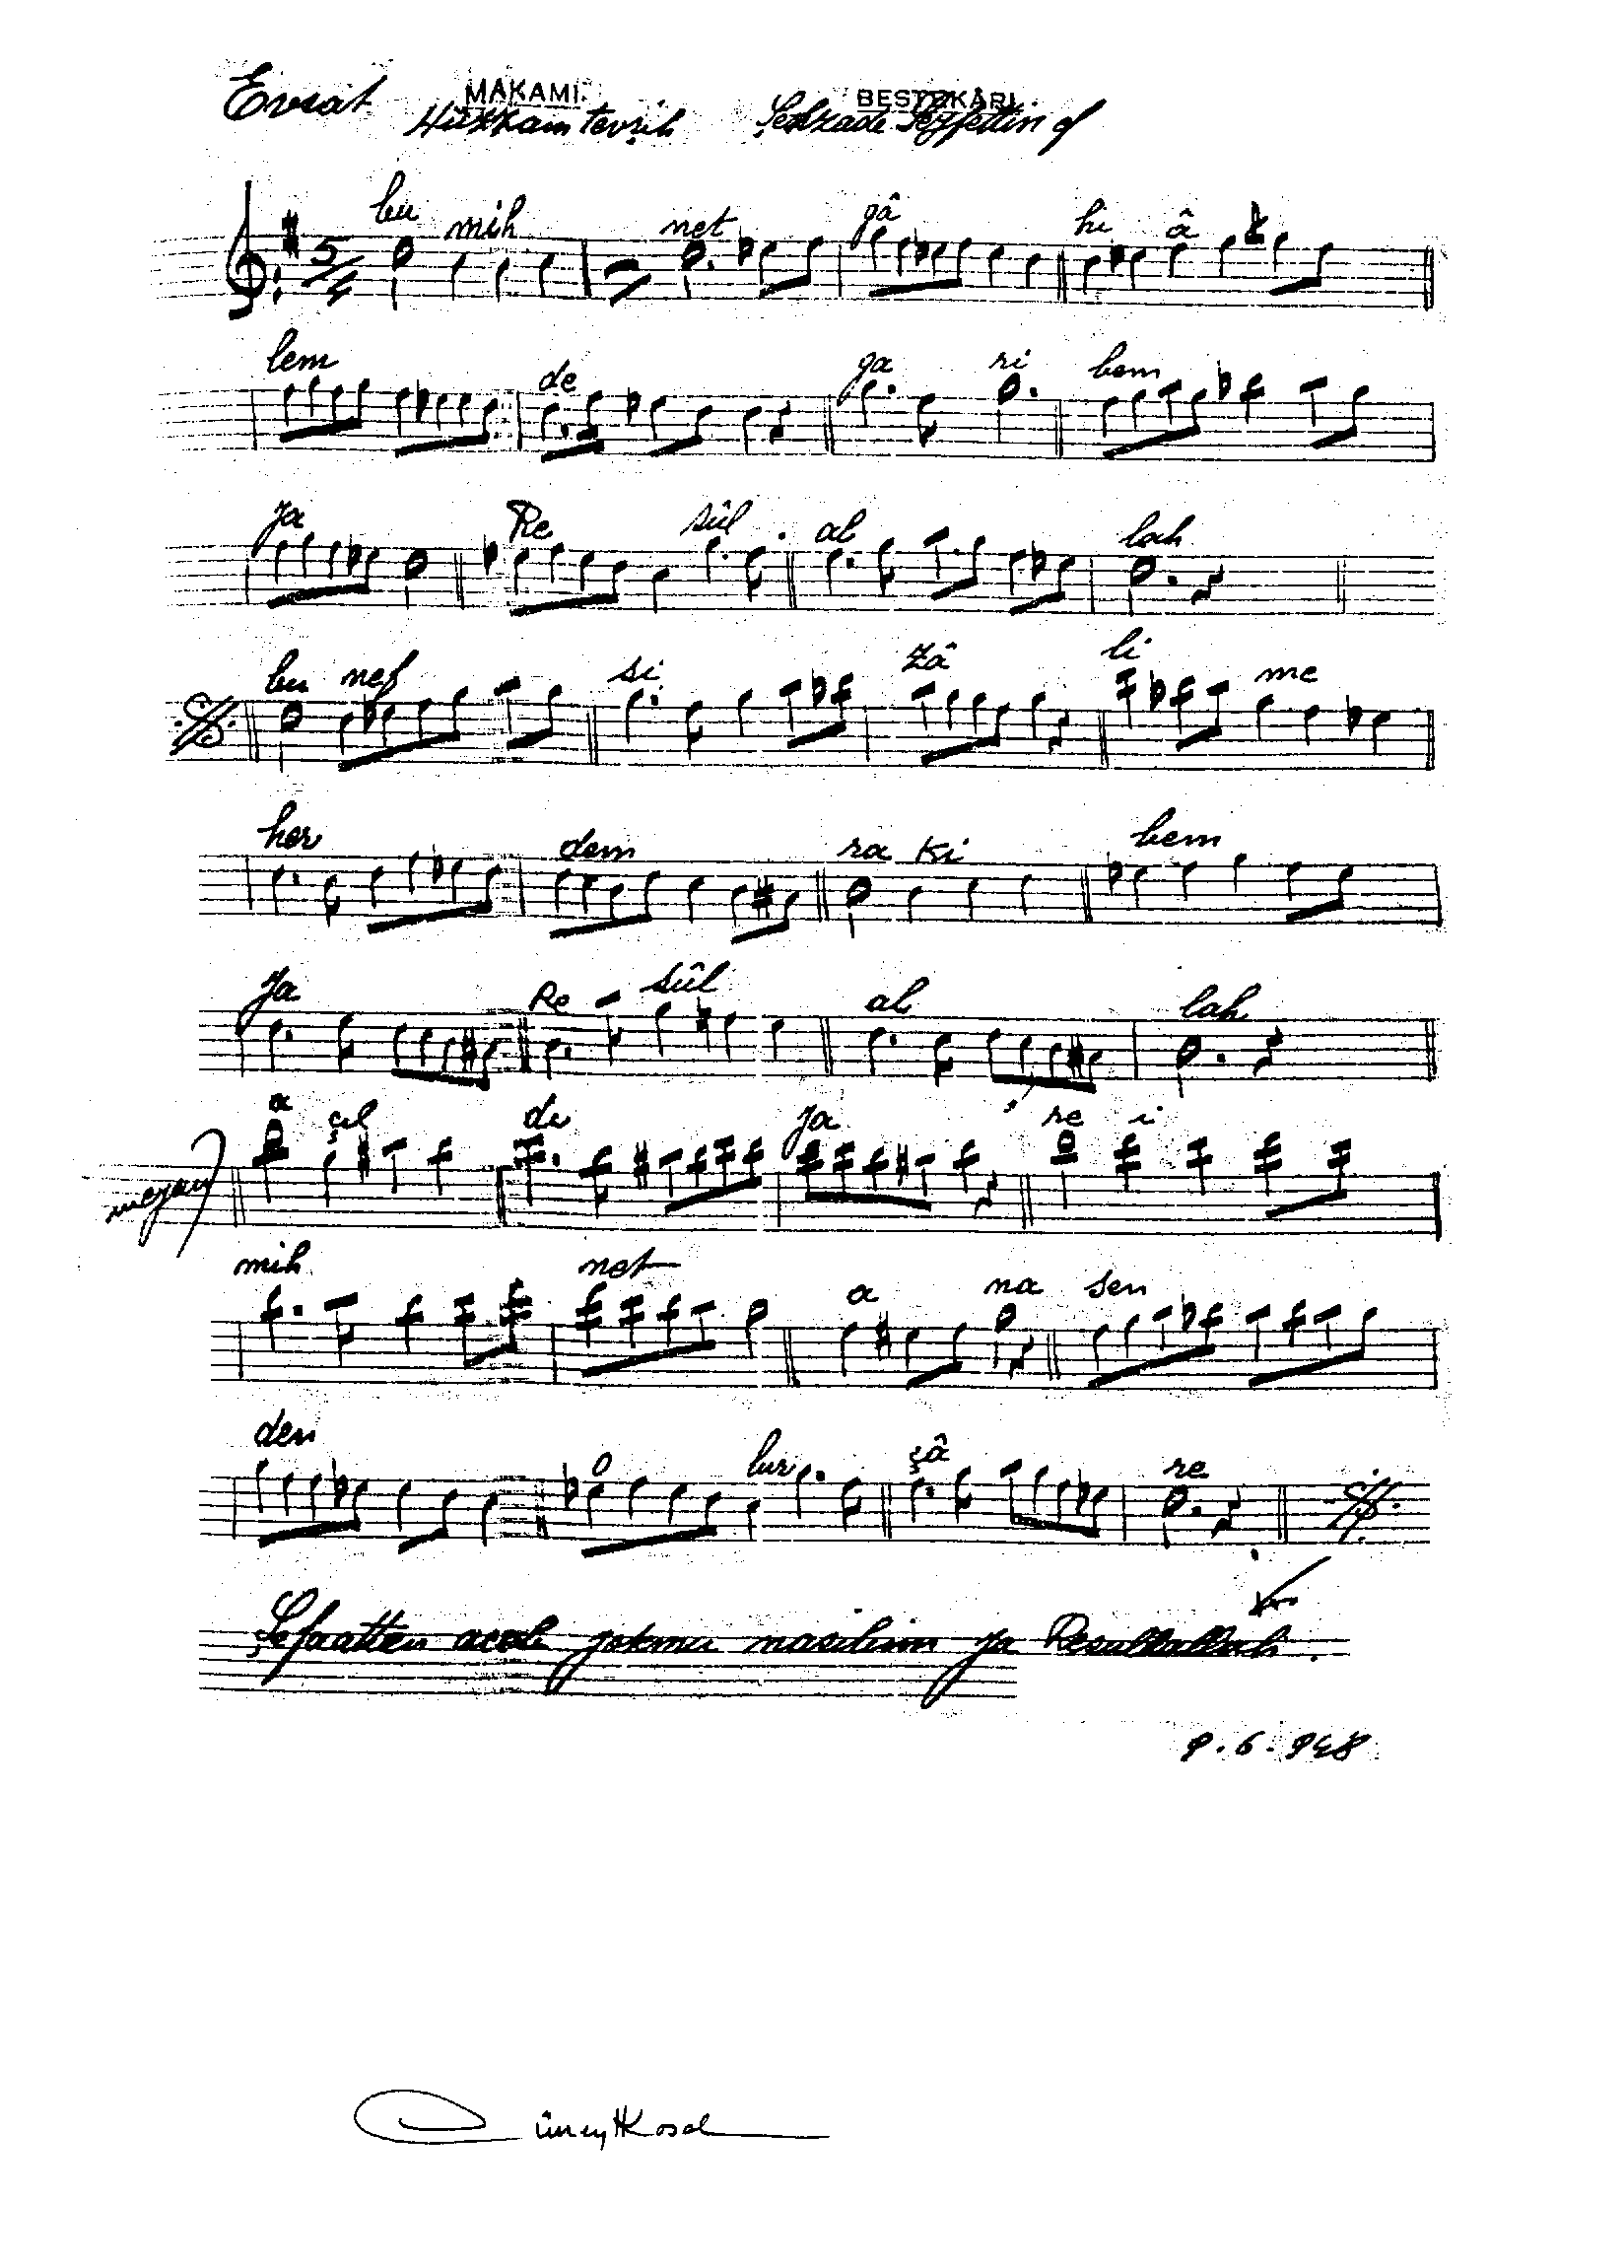 Evsat MAKAMI. BESTEKÂRI.
Hüzzam tevşih Şehzade Seyfettin ef
5/4
bu mih net gâ hi â
lem de ga ri bem
Ja Re sûl al lah
bu nef si zâ li me
her dem ra ki bem
Ja Re sûl al lah
meyan
a çıl dı Ja re i
mih net a na sen
den o lur çâ re
Şefaatten aceb yokmu nasibim ya Resullallah.
9.6.948
Cüneyt Kosal